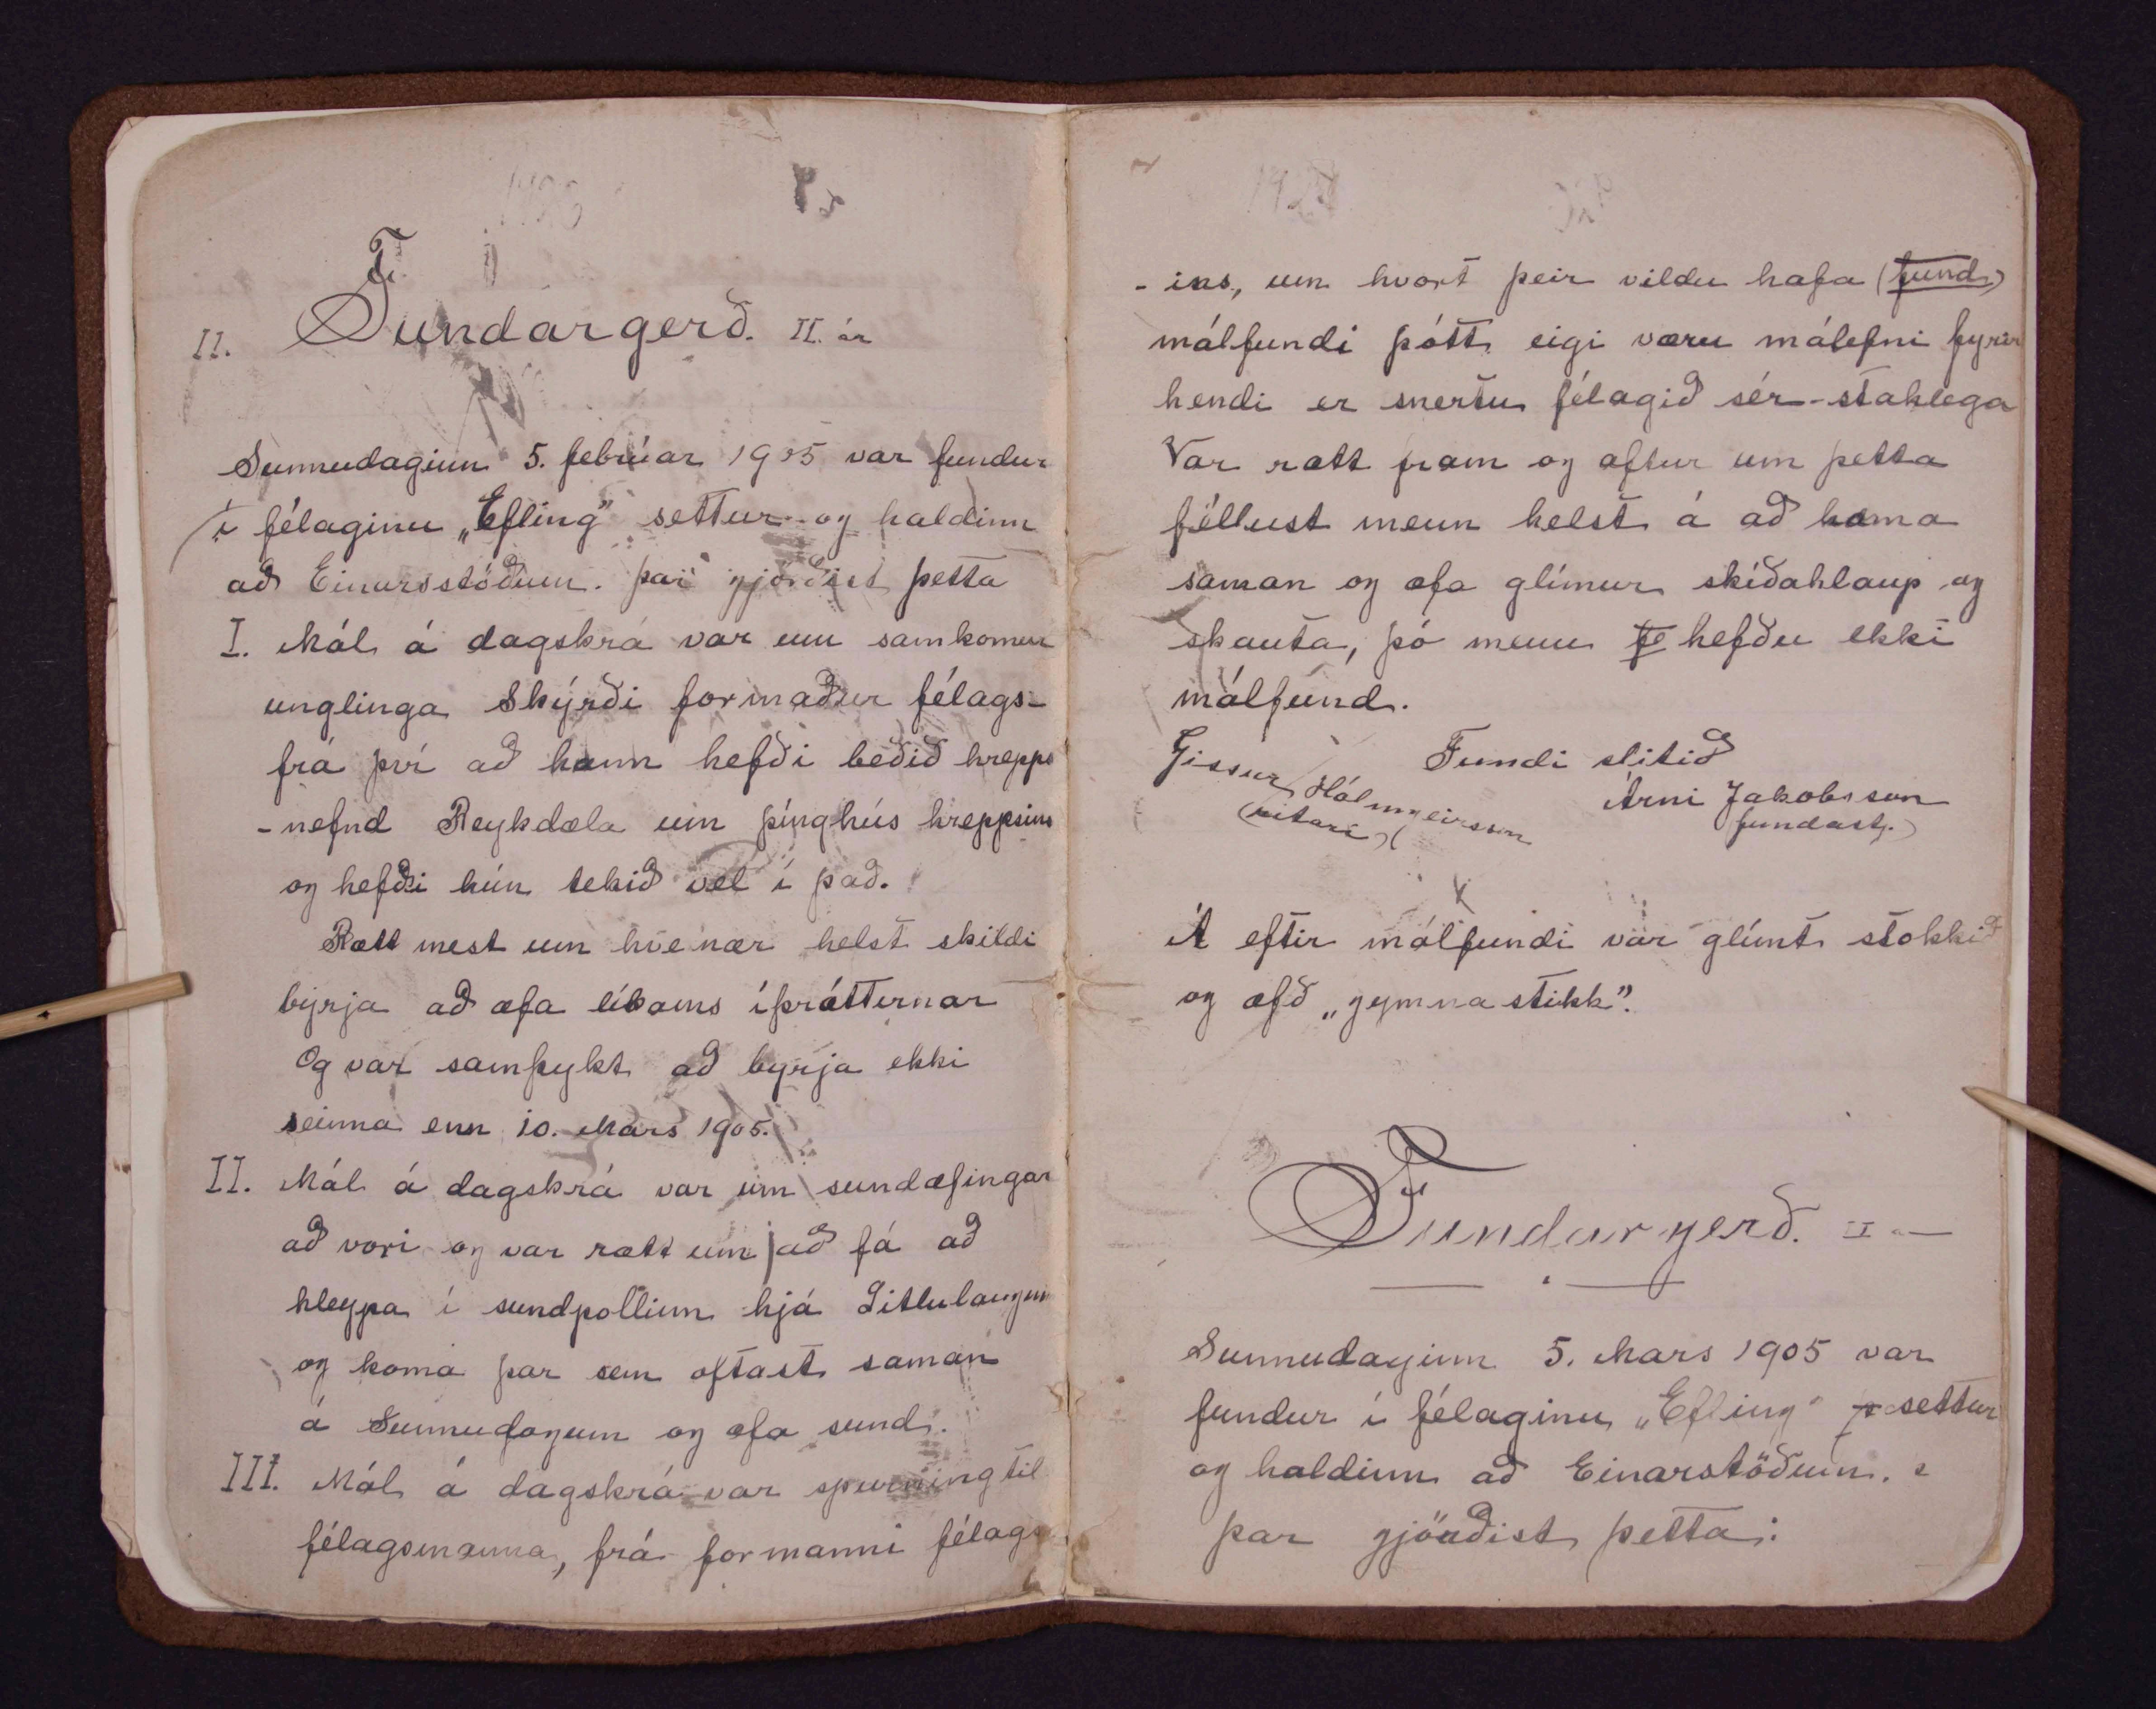 II. Fundargerð. II. ár
Sunnudaginn 5. febrúar 1905 var fundur
í félaginu „Efling" settur og haldinn
að Einarsstöðum. þar gjörðist þetta
I. Mál á dagskrá var um samkomur
unglinga Skýrði formaður félags-
frá því að hann hefði beðið hrepps
-nefnd Reykdæla um þinghús hreppsins
og hefði hún tekið vel í það.
Rætt mest um hvenær helst skildi
byrja að æfa líkams íþrótternar
Og var samþykt að byrja ekki
seinna enn 10. Mars 1905.
II. Mál á dagskrá var um sundæfingar
að vori og var rætt um að fá að
hleypa í sundpollinn hjá Litlulaugum
og koma þar sem oftast saman
á Sunnudogum og æfa sund.
III. Mál á dagskrá var spurning til
félagsmanna, frá formanni félags
- ins, um hvort þeir vildu hafa (fund)
málfundi þótt eigi væru málefni fyrir
hendi er snertu félagið sér-staklega
Var rætt fram og aftur um þetta
féllust menn helst á að koma
saman og æfa glímur skíðahlaup og
skauta, þó menn fe hefðu ekki
málfund.
Fundi slitið
Gissur Hólmgeirsson
(ritari)
Árni Jakobsson
fundastj.)
Á eftir málfundi var glímt stokkið
og æfð „gymnastikk".
Fundargerð. II
Sunnudaginn 5. Mars 1905 var
fundur í félaginu „Efling" settur
og haldinn að Einarstöðum.
þar gjörðist þetta: